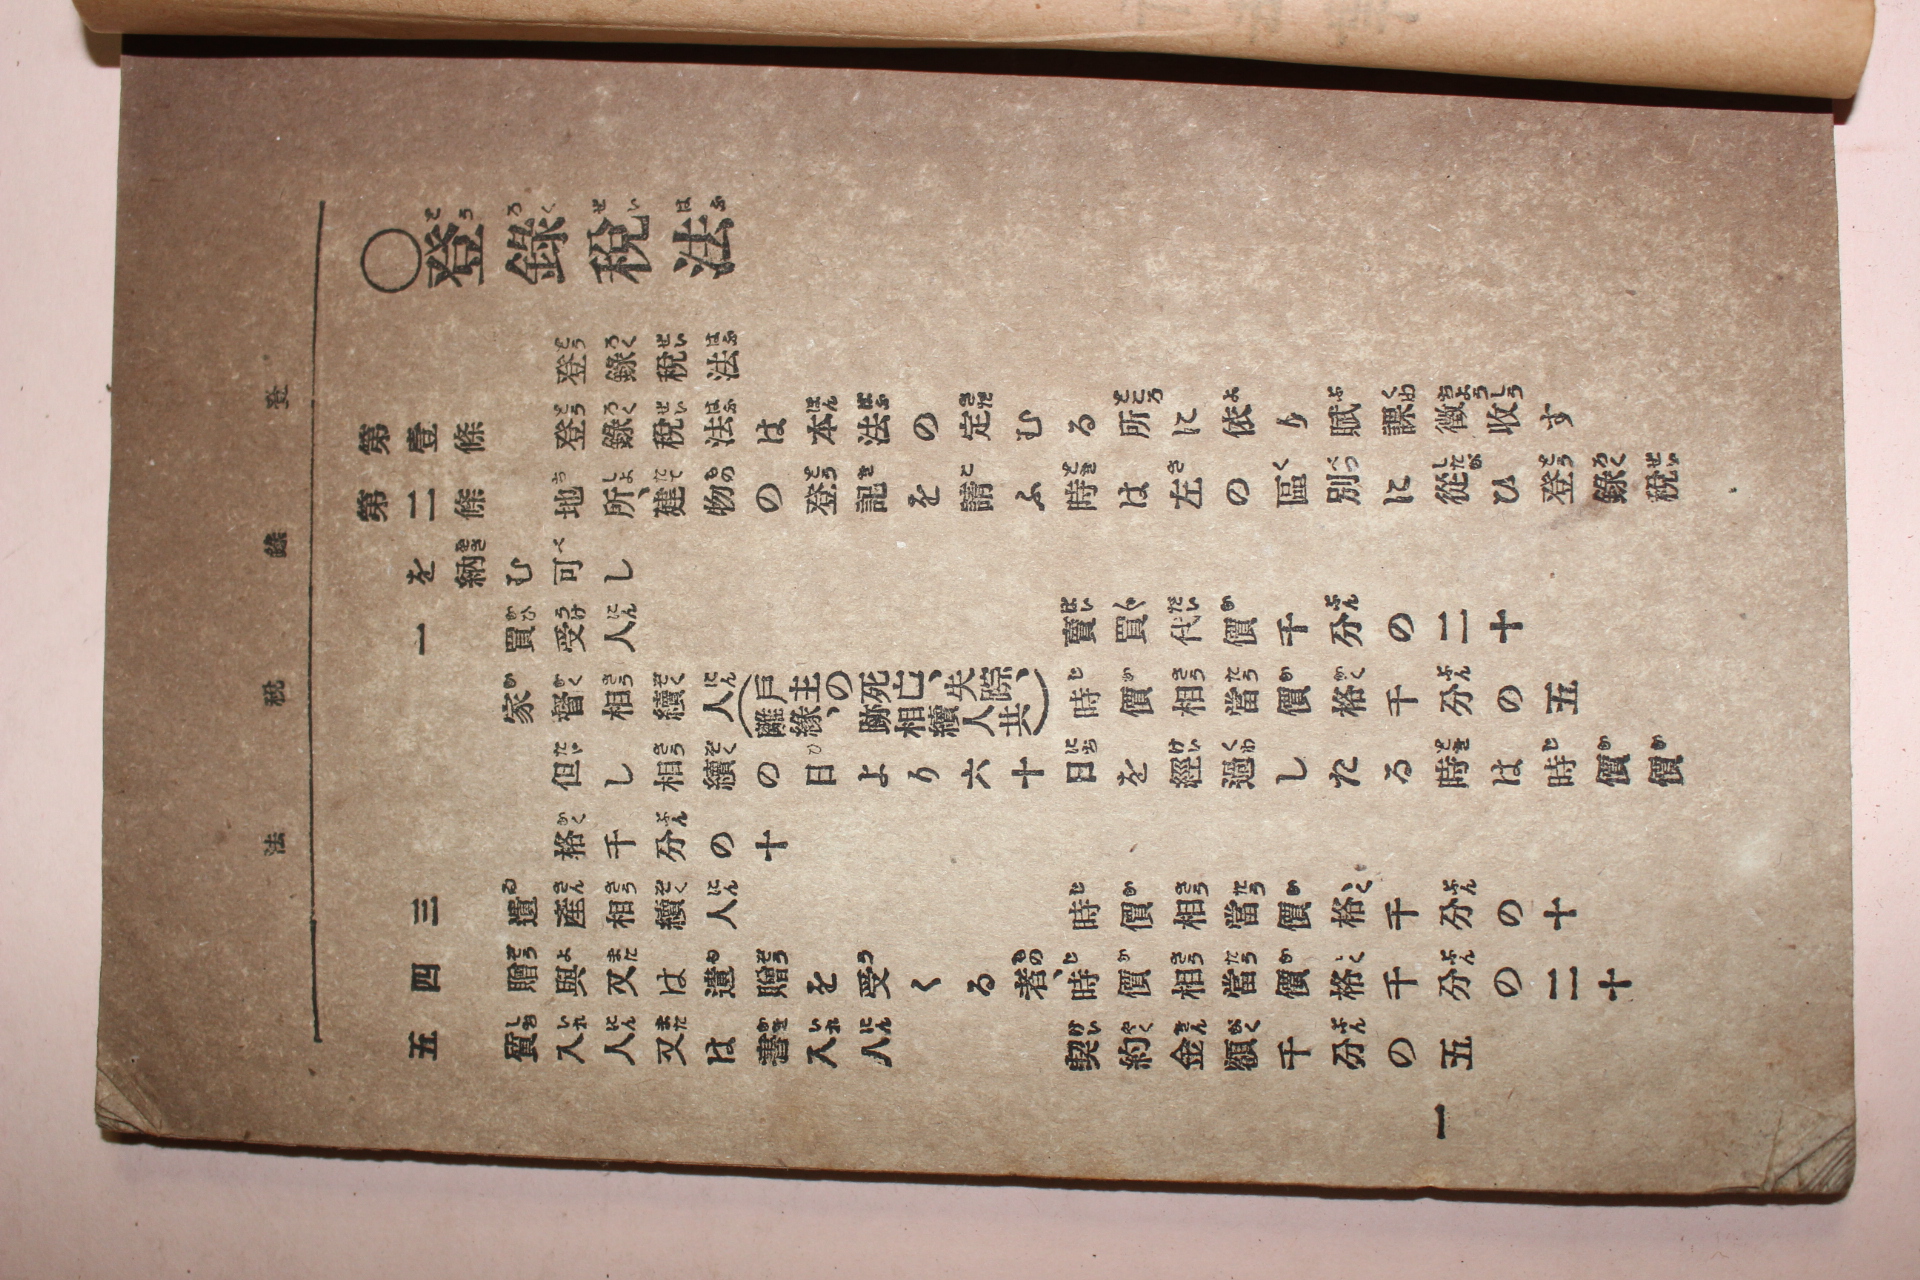 登錄稅法
〇登錄稅法
登錄稅法
第壹條 登錄稅法は本法の定むる所に依り賦課徵收す
第二條 地所、建物の登記を請ふ時は左の區別に從ひ登錄稅
を納む可し
一 買受人 賣買代價千分の二十
家督相續人(戶主の死亡、失踪、離緣、跡相續人共) 時價相當價格千分の五
但し相續の日より六十日を經過したる時は時價價
格千分の十
三 遺產相續人 時價相當價格千分の十
四 贈與又は遺贈を受くる者、時價相當價格千分の二十
五 質入人又は書入人 契約金額千分の五
一